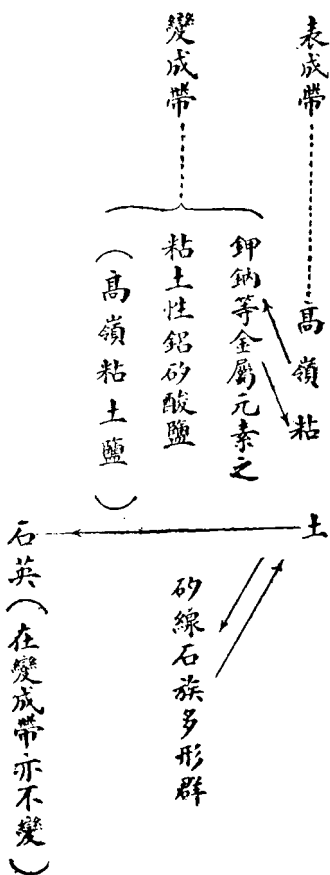 表成帶………高嶺粘土
變成帶………
鉀鈉等金屬元素之
粘土性鋁矽酸鹽
(高嶺粘土鹽)
矽線石族多形群
石英(在變成帶亦不變)